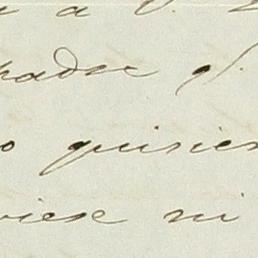 a
padre q.
o quisier
viese ni